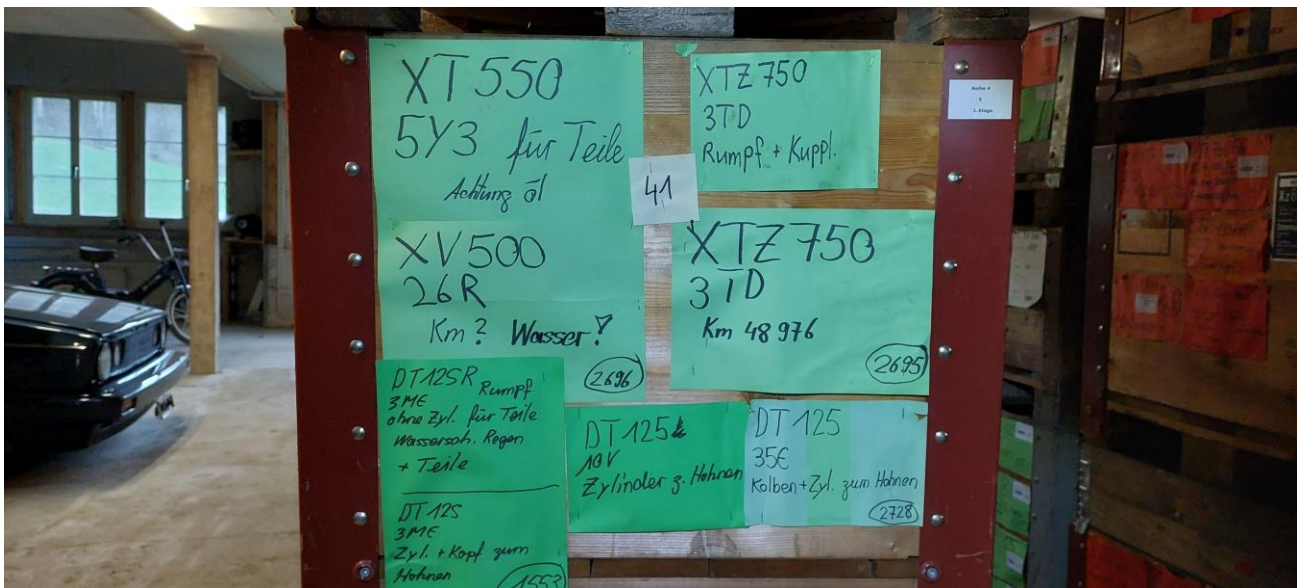 XT 550
5Y3 für Teile
Achtung öl
XTZ 750
3TD
Rumpf + Kuppl.
41
Reihe 4
2. Etage
XV 500
26R
Km? Wasser!
2696
XTZ 750
3TD
Km 48 976
2695
DT125R Rumpf
3ME
ohne Zyl. für Teile
Wassersch. Regen
+ Teile
DT 125
3ME
Zyl. + Kopf zum
Hohnen
1553
DT 125
10V
Zylinder z. Hohnen
DT 125
35E
Kolben + Zyl. zum Hohnen
2728